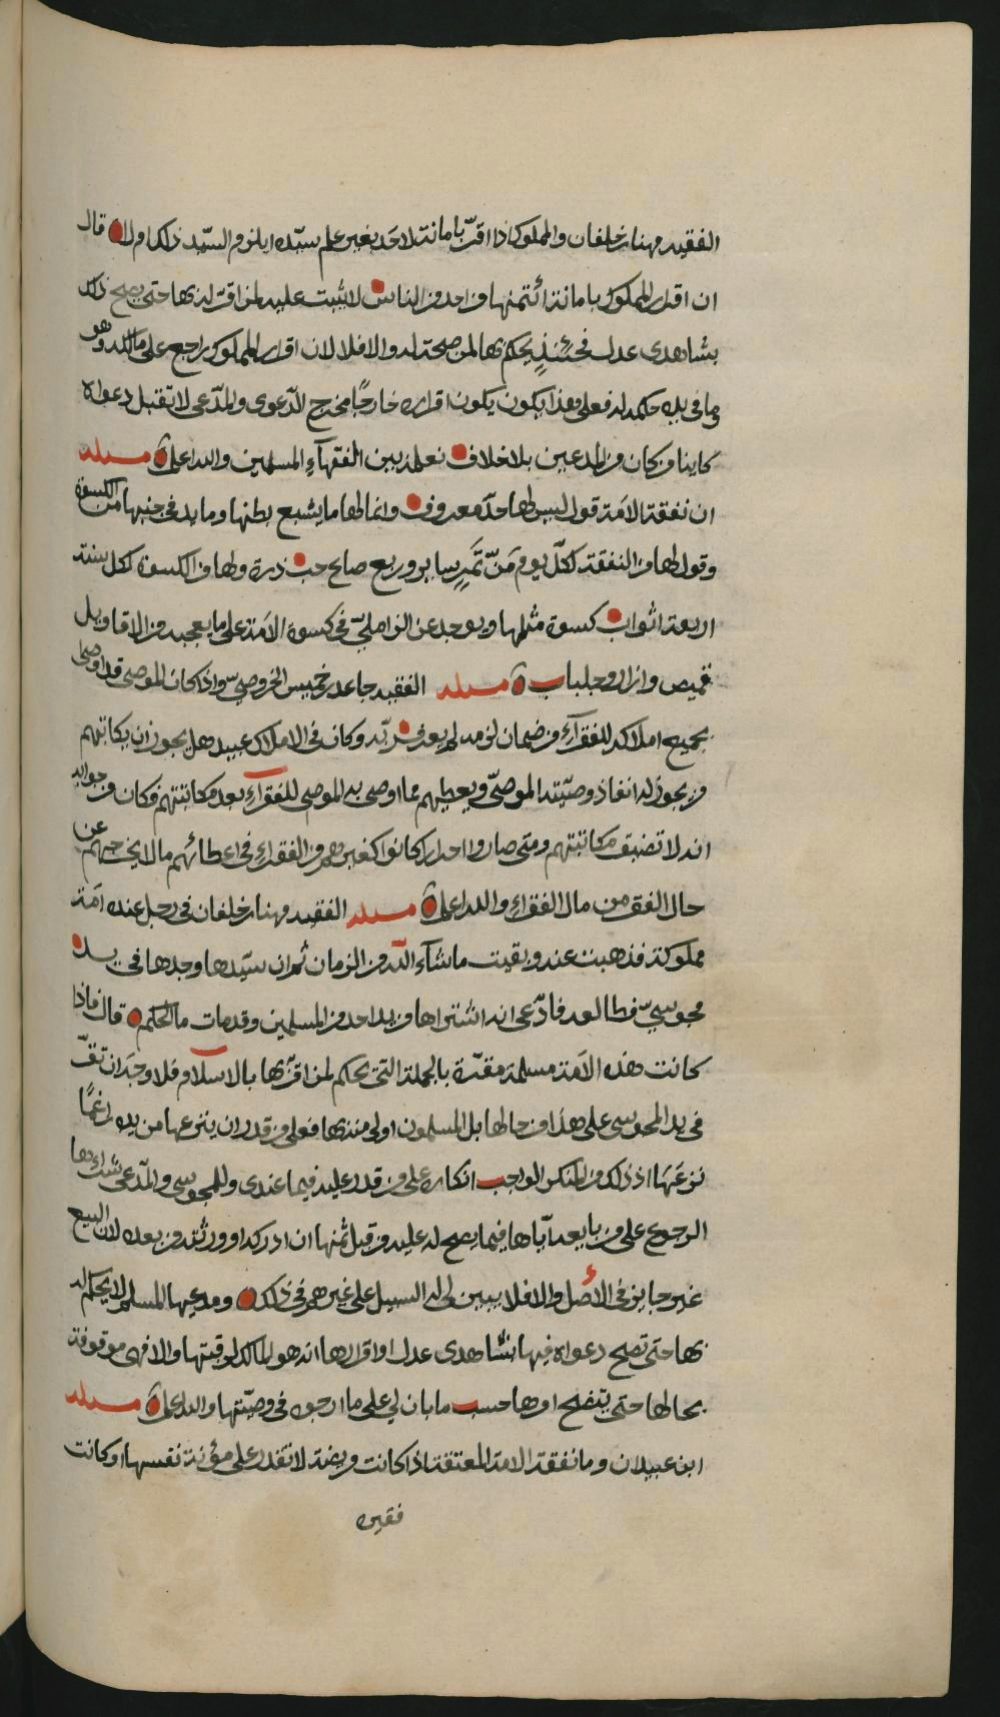 الفقيه مهنا بن خلفان والمملوك اذا اقرّ بامانة لاحد بغير علم سيّده ايلزم السيّد ذلك ام لا قال
ان اقرار المملوك بامانة ائتمنها من احد من الناس لا يثبت عليه لمن اقرّ له بها حتى يصح ذلك
بشاهدى عدل فحينئذٍ يحكم بها لمن صحة له والا فلا لان اقرار المملوك راجع على مالكه وهو
وما فى يده حكمه له فعلى هذا يكون يكون اقراره خارجًا مخرج الدّعوى والمدّعى لا تقبل دعواه
كاينا من كان من المدعين بلا خلاف نعلمه بين الفقهآءِ المسلمين والله اعلم مسئله
ان نفقة الامَة قول ليس لها حدّ معروف وانما لها ما يشبع بطنها وما يدفى جنبها من الكسوة
وقول لها من النفقة لكلّ يوم مَنّ تَمَرٍ سابر وربع صاع حب ذرة ولها من الكسوة لكل سنة
اربعة اثواب كسوة مثلها ويوجد عن الزاملىّ فى كسوة الامَة على ما يعجبه من الاقاويل
قميص وازار وجلباب مسئله الفقيه جاعد بن خميس الخروصىّ واذا كان الموصى قد اوصى
بجميع املاكه للفقرآءِ من ضمان لزمه لم يعرف ربّه وكان فى الاملاك عبيد هل يجوز ان يكاتبهم
من يجوز له انفاذ وصيّته الموصىّ ويعطيهم مما اوصى به الموصى للفقرآءِ بعد مكاتبتهم فكان من جوابه
انه لا تضيق مكاتبتهم ومتى صاروا احرار كانوا كغيرهم من الفقرآءِ فى اعطائهم مالا يخرجهم عن
حال الفقر من مال الفقرآءِ والله اعلم مسئله الفقيه مهنا بن خلفان فى رجل عنده امَة
مملوكة فذهبت عنه وبقيت ما شآء اللّه من الزمان ثم ان سيّدها وجدها فى يد
مجوسىّ فطالعه فادّعى انه اشتراها من يد احد من المسلمين وقد مات ما الحكم قال فاذا
كانت هذه الامَة مسلمة مقرّة بالجملة التى يحكم لمن اقرّ بها بالاسلام فلا وجه ان تقرّ
فى يد المجوسى على هذا من حالها بل المسلمون اولى منه بها فعلى من قدر ان ينزعها من يده رغمًا
نزعَهَا اذ ذلك من المنكر الواجب انكاره على من قدر عليه فيما عندى وللمجوسى والمدّعى شراءها
الرجوع على من بايعه اَيّاها فيما يصح له عليه من قبل ثمنها ان ادركه او ورثته من بعده لان البيع
غير جايز فى الأصل والا فلا يبين لى له السبيل على غيرهم فى ذلك ومدعيها المسلم لا يحكم له
بها حتى تصح دعواه فيها بشاهدى عدل او اقرارها انه هو المالك لرقبتها والا فهى موقوفة
بحالها حتى يتضح امرها حسب ما بان لى على ما ارجوه فى وصيّتها والله اعلم مسئله
ابن عبيدان وما نفقة الامة المعتقة اذا كانت مريضة لا تقدر على مؤنة نفسها او كانت
فقيره